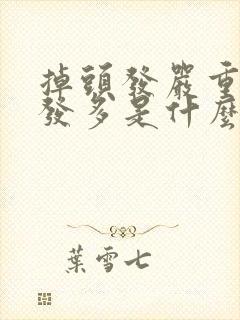 掉頭發嚴重
發多是什麼
葉雪七